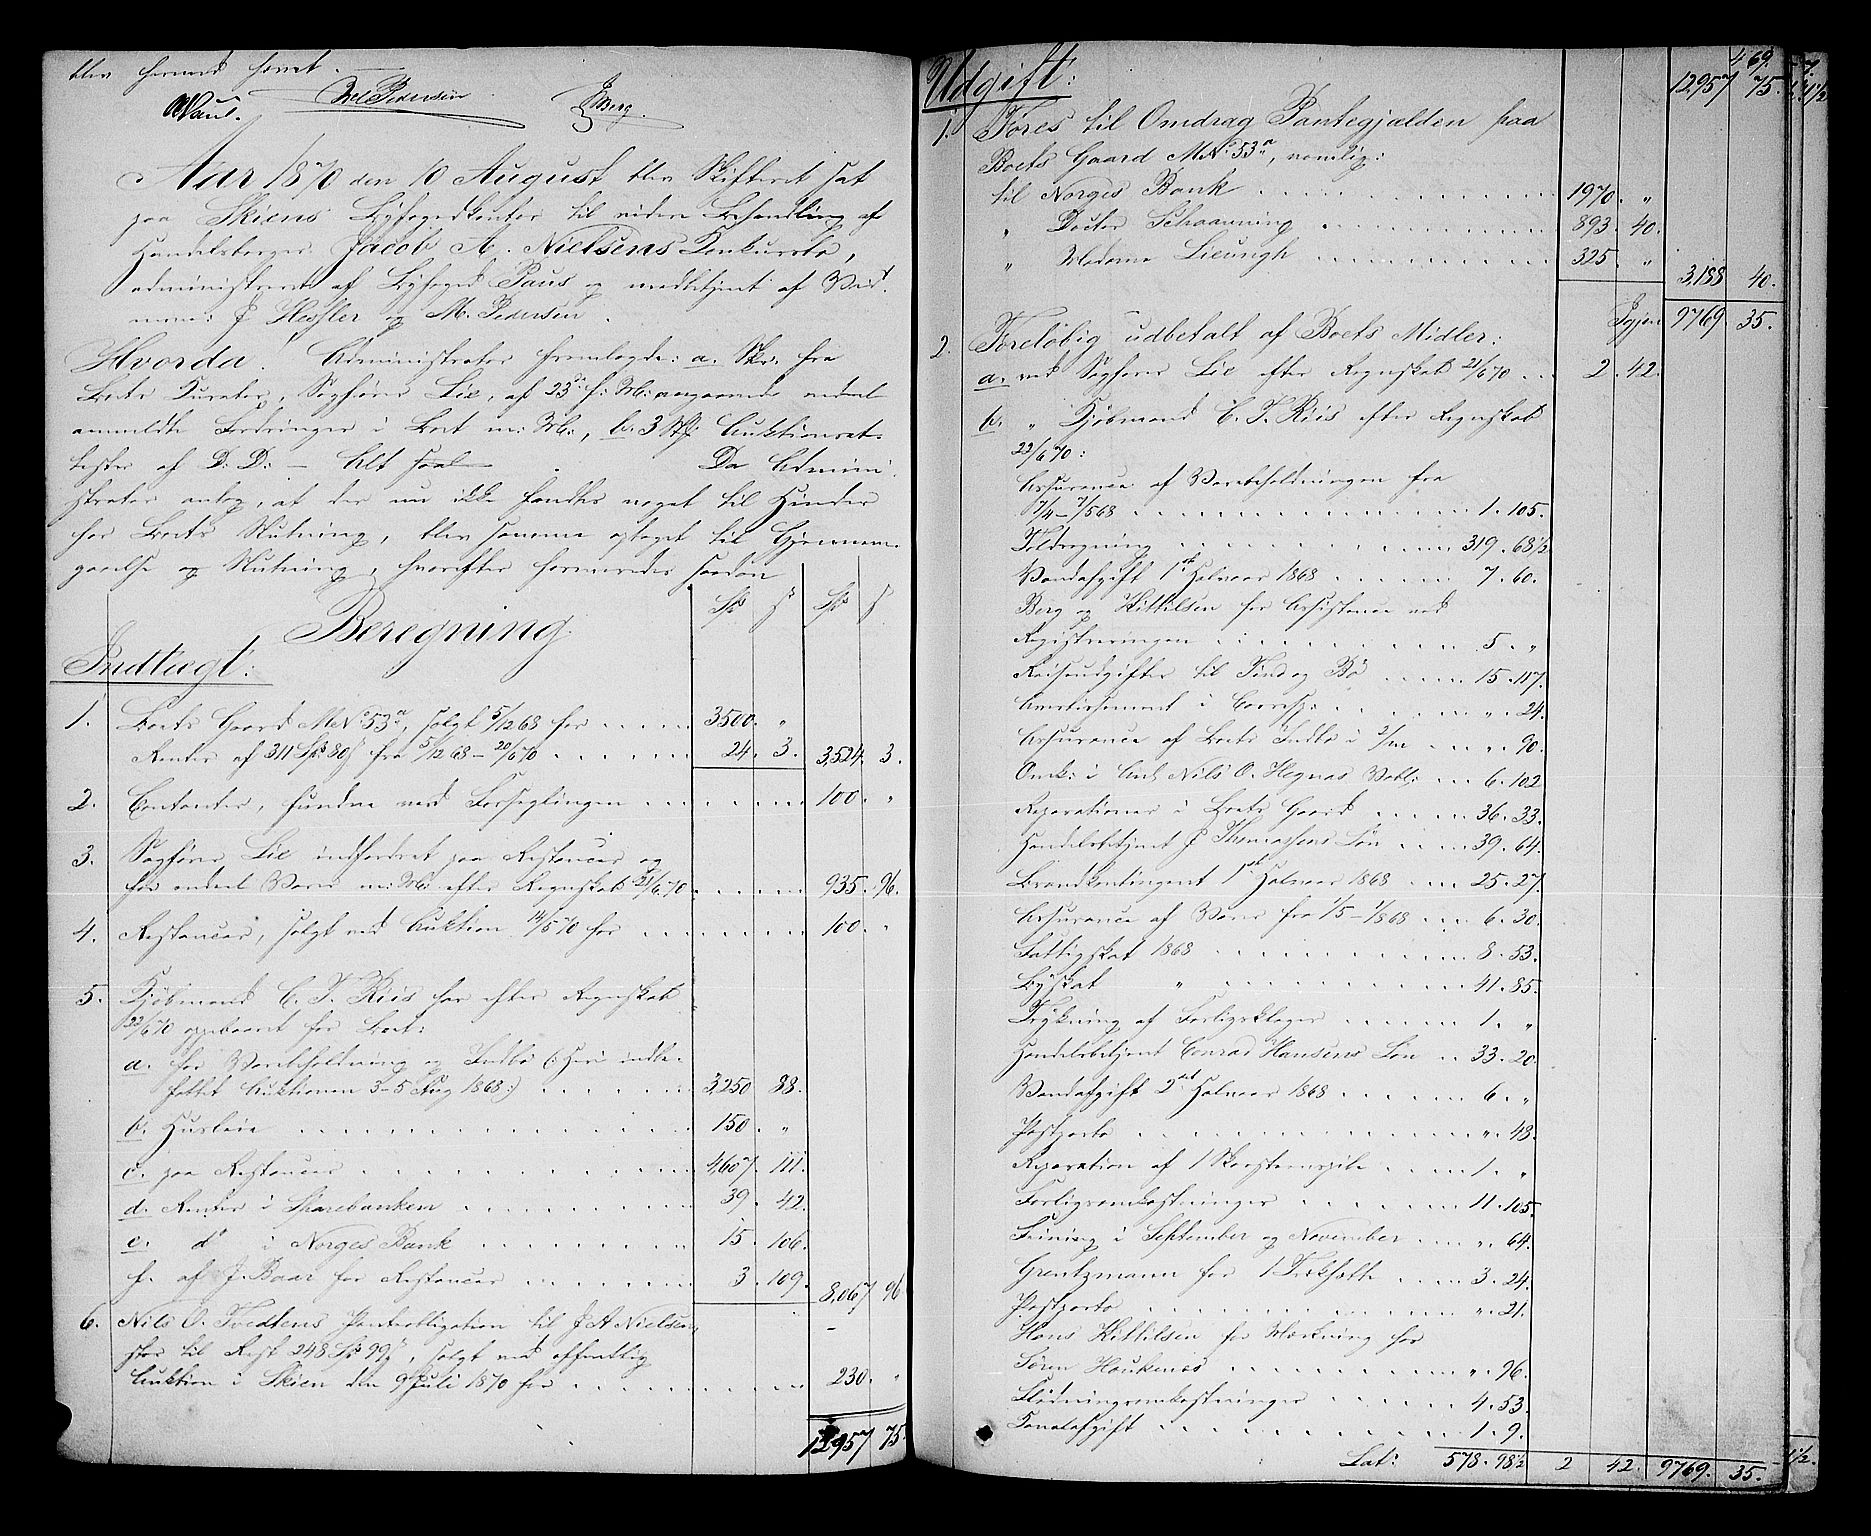 blev hermed hævet.
Paus. M. Pedersen JBerg
Aar 1870 den 10 August blev Skifteret sat
paa Skiens Byfogedkontor til videre Behandling af
Handelsborger Jacob A. Nielsens Konkursbo,
administreret af Byfoged Paus og medbetjent af Vid-
nerne: J Hessler og M. Pedersen.
Hvorda: Administrator fremlagde: a. Skr. fra
Boets Curator, Sagfører Lie, af 23de f: M: angaaende endeel
anmeldte Fordringer i Boet m: M:, b. 3 Stk Auktionsat-
tester af D. D: — Alt saal
Da Admini-
strator antog, at der nu ikke fandtes noget til Hinder
for Boets Slutning, blev samme optaget til Gjennem-
gaaelse og Slutning, hvorefter formeredes saadan
Beregning
Spd ß Spd ß
Indtægt:
1. Boets Gaard MNo 53a, solgt 5/12 68 for 3500. "
Renter af 311 Spd 80ß fra 5/12 68 – 20/6 70 24. 3. 3,524. 3.
2. Contanter, fundne ved Forseglingen 100. "
3. Sagfører Lie indfordret paa Restancer og
for endeel Varer m: M: efter Regnskab 21/6 70. 935. 96.
4. Restancer, solgt ved Auktion 14/5 70 for 100. "
5. Kjøbmand C. F. Riis har efter Regnskab
22/6 70 oppebaaret for Boet:
a. for Varebeholdning og Indbo (: Heri indbe-
fattet Auktionen 3–5 Aug 1868:) 3,250 88.
b. Husleie 150. "
c. paa Restancer 4,607. 111.
d. Renter i Sparebanken 39. 42.
e. do i Norges Bank 15. 106.
f. af J. Baar for Restancer 3. 109. 8,067 96
6. Nils O. Tvedtens Pantobligation til J A Nielsen,
stor til Rest 248 Spd 99ß, solgt ved offentlig
Auktion i Skien den 9 Juli 1870 for 230. "
12957 75.
469.
Udgift: 12,957 75.
1. Føres til Omdrag Pantegjælden paa
Boets Gaard MNo 53a, nemlig:
til Norges Bank 1970. "
" Doctor Schaanning 893. 40.
" Madame Lieungh 325. " 3,188 40.
Igjen 9769 35.
2. Foreløbig udbetalt af Boets Midler:
a. ved Sagfører Lie efter Regnskab 21/6 70 2. 42.
b. " Kjøbmand C. F. Riis efter Regnskab
22/6 70:
Assurance af Varebeholdningen fra
7/4 – 7/5 68 1. 105.
Toldregning 319. 68½.
Vandafgift 1ste Halvaar 1868 7. 60.
Berg og Kittilsen for Assistance ved
Registreringen 5. "
Reiseudgifter til Tind og Bø 15. 117.
Avertissement i Corresp: ". 24.
Assurance af Boets Indbo i 2/m ". 90.
Omk: i Anl Nils O. Hegnas 6. 102
Reparationer i Boets Gaard 36. 33.
Handelsbetjent J Thomassens Løn 39. 64.
Brandkontingent 1ste Halvaar 1868 25. 27.
Assurance af Varer fra 1/5 – 1/8 68 6. 30.
Fattigskat 1868 8. 53.
Byskat " 41. 85.
Trykning af Forligsklager 1. "
Handelsbetjent Conrad Hansens Løn 33. 20
Vandafgift 2det Halvaar 1868 6. "
Postporto ". 48.
Reparation af 1 Skorstenspibe 1. "
Forligsomkostninger 11. 105.
Feining i September og November ". 64.
Grentzmann for 3. 24.
Postporto ". 21.
Hans Kittilsen for Mærkning for
Søren Haukenæs ". 96.
Stevningsomkostninger 4. 53.
Canalafgift 1. 9.
Lats 578. 98½ 2 42. 9769. 35.